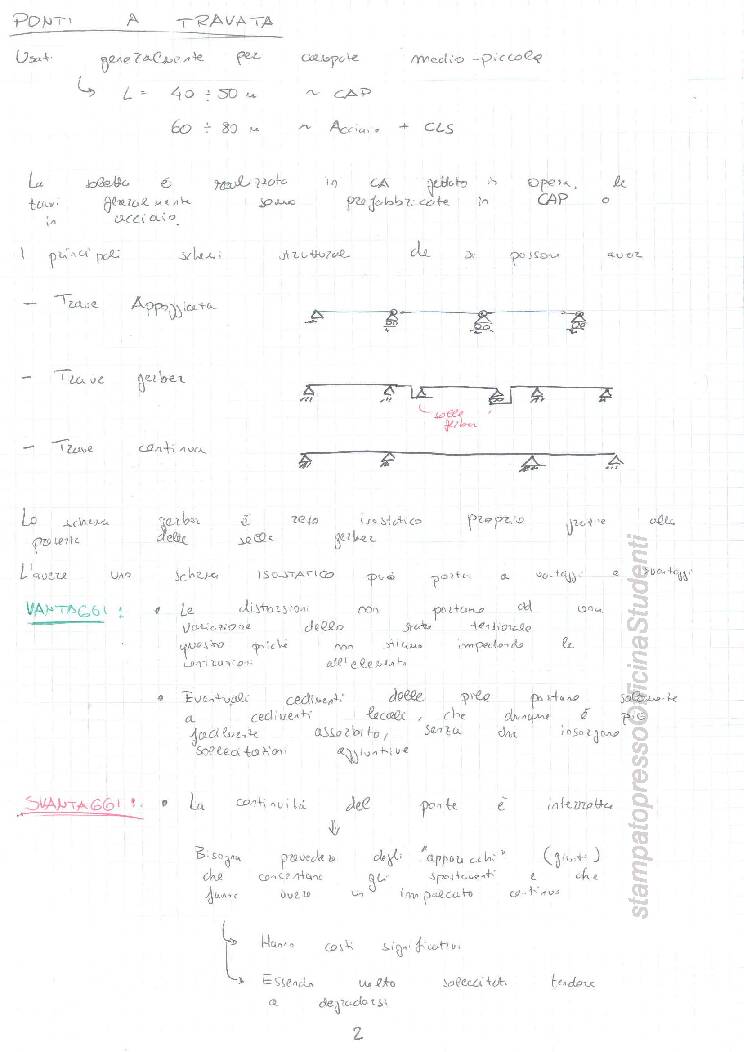 PONTI A TRAVATA
Usati generalmente per campate medio-piccole
↳ L = 40 ÷ 50 m ~ CAP
60 ÷ 80 m ~ Acciaio + CLS
La soletta è realizzata in CA gettato in opera, le
travi generalmente sono prefabbricate in CAP o
in acciaio.
I principali schemi strutturali che si possono avere
- Trave Appoggiata
- Trave gerber
selle
gerber
- Trave continua
Lo schema gerber è reso isostatico proprio grazie alla
presenza delle selle gerber
L'avere uno schema ISOSTATICO può portare a vantaggi e svantaggi
VANTAGGI: • Le distorsioni non portano ad una
variazione dello stato tensionale
questo poiché non stiamo impedendo le
all'elemento
• Eventuali cedimenti delle pile portano solamente
a cedimenti locali, che dunque è più
facilmente assorbito, senza che insorgano
sollecitazioni aggiuntive
SVANTAGGI: • La continuità del ponte è interrotta
↓
Bisogna prevedere degli "apparecchi" (giunti)
che consentano gli spostamenti e che
fanno avere un impalcato continuo
↳ Hanno costi significativi
↳ Essendo molto sollecitati tendono
a degradarsi
2
stampatopresso©OfficinaStudenti